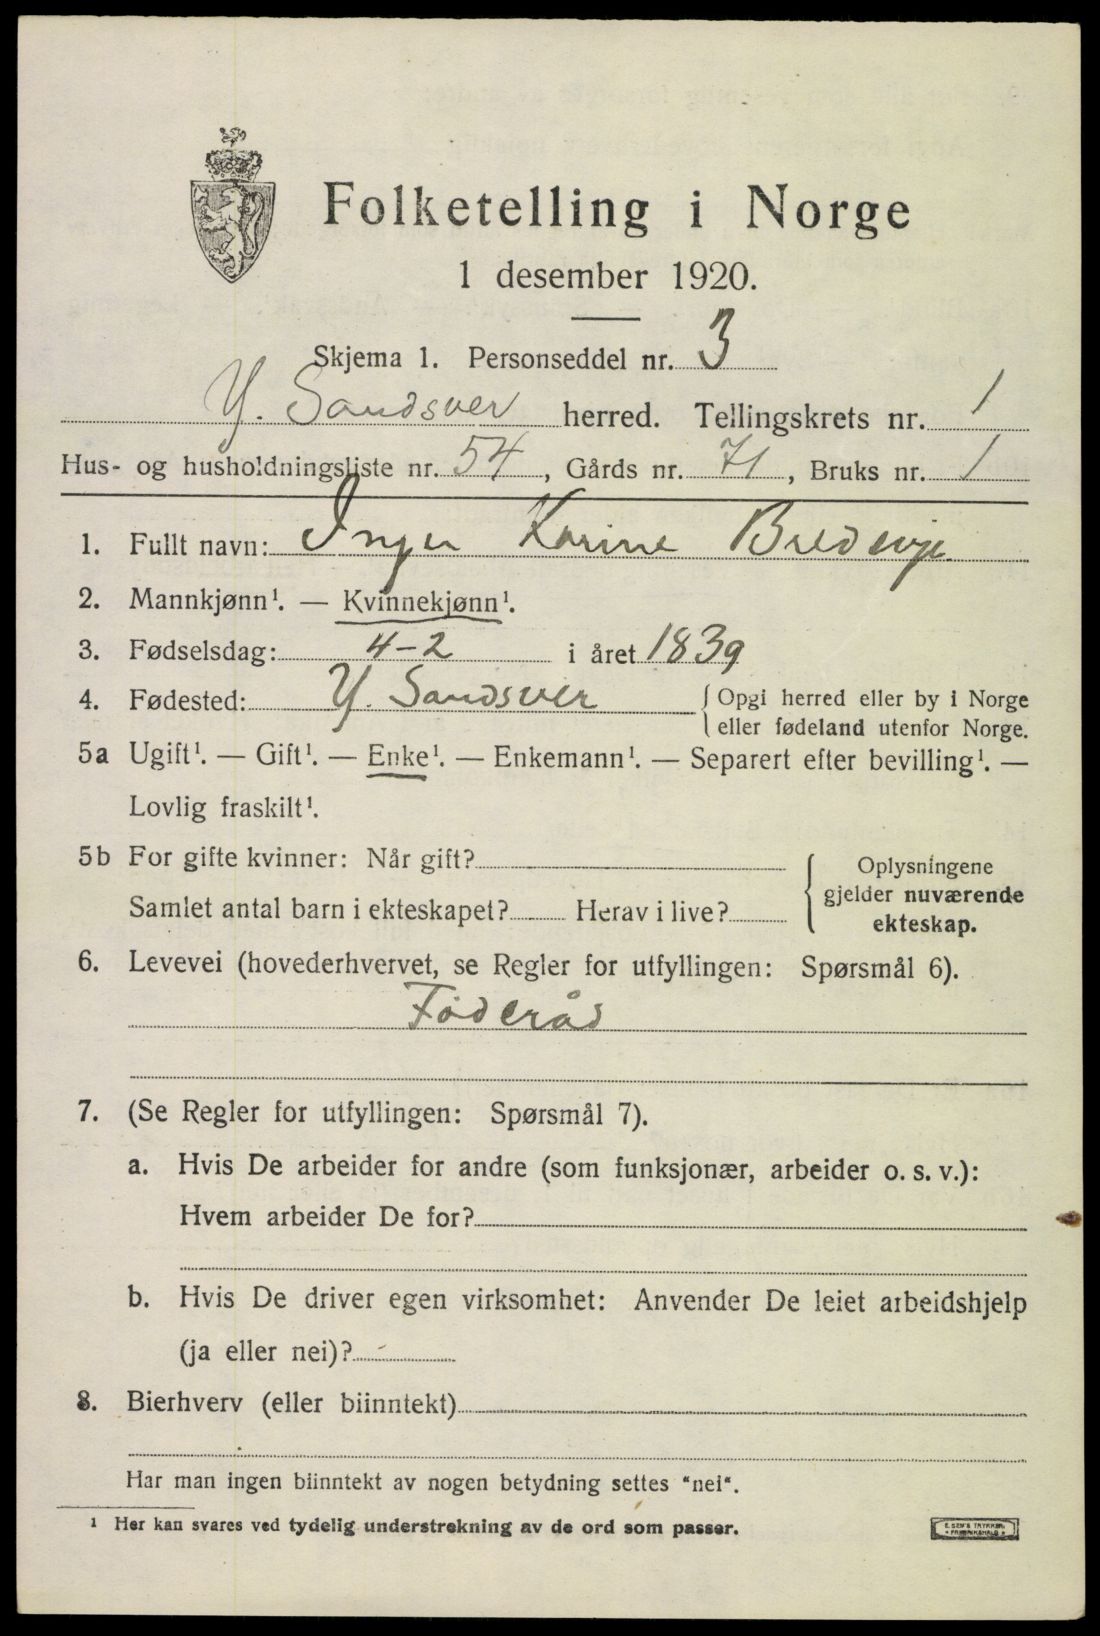 Folketelling i Norge
1 desember 1920.
Skjema 1. Personseddel nr. 3
Y. Sandsver herred. Tellingskrets nr. 1
Hus- og husholdningsliste nr. 54, Gårds nr. 71, Bruks nr. 1
1. Fullt navn: Inger Karine
2. Mannkjønn¹. — Kvinnekjønn¹.
3. Fødselsdag: 4-2 i året 1839
4. Fødested: Y. Sandsver Opgi herred eller by i Norge
eller fødeland utenfor Norge.
5a Ugift¹. — Gift¹. — Enke¹. — Enkemann¹. — Separert efter bevilling¹. —
Lovlig fraskilt¹.
5b For gifte kvinner: Når gift?
Samlet antal barn i ekteskapet? Herav i live?
Oplysningene
gjelder nuværende
ekteskap.
6. Levevei (hovederhvervet, se Regler for utfyllingen: Spørsmål 6).
Føderåd
7. (Se Regler for utfyllingen: Spørsmål 7).
a. Hvis De arbeider for andre (som funksjonær, arbeider o. s. v.):
Hvem arbeider De for?
b. Hvis De driver egen virksomhet: Anvender De leiet arbeidshjelp
(ja eller nei)?
8. Bierhverv (eller biinntekt)
Har man ingen biinntekt av nogen betydning settes "nei".
¹ Her kan svares ved tydelig understrekning av de ord som passer.